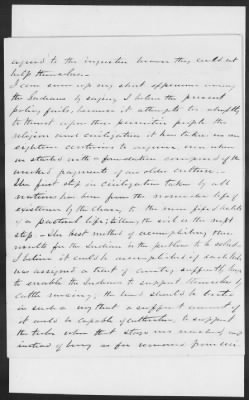 agreed to the injustice because they could not
help themselves.—
I can sum up my short experience among
the Indians by saying I believe the present
policy fails, because it attempts too abruptly
to thrust upon these primitive people the
religion and civilization it has taken us
eighteen centuries to acquire, even when
we started with a foundation composed of the
wrecked fragments of an older culture.—
The first step in civilization taken by all
nations has been from the nomadic life of
existence by the chase, to the more peaceable
of a pastoral life, tilling the soil is the next
step. The best method of accomplishing these
results for the Indians is the problem to be solved.
I believe it could be accomplished if each tribe
was assigned a tract of country sufficiently large
to enable the Indians to support themselves by
cattle raising, the land should be located
in such a way that a sufficient amount of
it would be capable of cultivation, to support
the tribe when that stage was reached, and
instead of being as far removed from